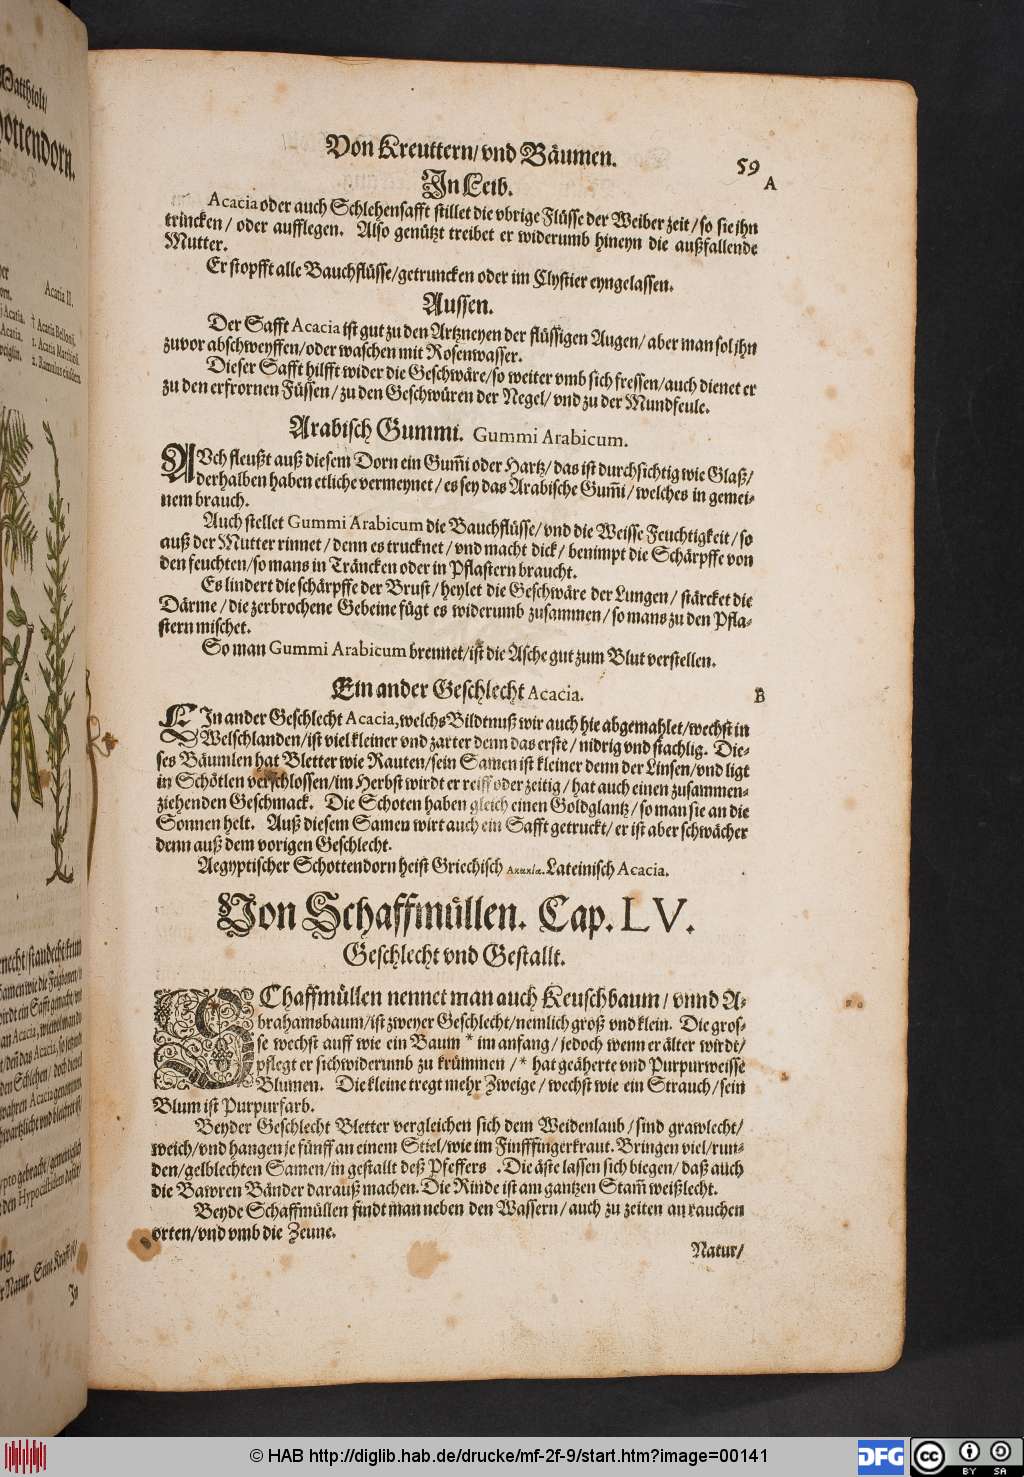 Matthioli/
ottendorn.
Acatia II.
† Acatia Bellonij.
1. Acatia Matthioli.
Acatia.
Acatia.
Von Kreuttern/ vnd Bäumen.
59
A
In Leib.
Acacia oder auch Schlehensafft stillet die vbrige Flüsse der Weiber zeit/ so sie ihn
trincken/ oder aufflegen. Also genützt treibet er widerumb hineyn die außfallende
Mutter.
Er stopfft alle Bauchflüsse/ getruncken oder im Clystier eyngelassen.
Aussen.
Der Safft Acacia ist gut zu den Artzneyen der flüssigen Augen/ aber man sol ihn
zuvor abschweyffen/ oder waschen mit Rosenwasser.
Dieser Safft hilfft wider die Geschwäre/ so weiter vmb sich fressen/ auch dienet er
zu den erfrornen Füssen/ zu den Geschwüren der Negel/ vnd zu der Mundfeule.
Arabisch Gummi. Gummi Arabicum.
AVch fleußt auß diesem Dorn ein Gum̃i oder Hartz/ das ist durchsichtig wie Glaß/
derhalben haben etliche vermeynet/ es sey das Arabische Gum̃i/ welches in gemei-
nem brauch.
Auch stellet Gummi Arabicum die Bauchflüsse/ vnd die Weisse Feuchtigkeit/ so
auß der Mutter rinnet/ denn es trucknet/ vnd macht dick/ benimpt die Schärpffe von
den feuchten/ so mans in Träncken oder in Pflastern braucht.
Es lindert die schärpffe der Brust/ heylet die Geschwäre der Lungen/ stärcket die
Därme/ die zerbrochene Gebeine fügt es widerumb zusammen/ so mans zu den Pfla-
stern mischet.
So man Gummi Arabicum brennet/ ist die Asche gut zum Blut verstellen.
Ein ander Geschlecht Acacia.
B
EIn ander Geschlecht Acacia, welchs Bildtnuß wir auch hie abgemahlet/ wechst in
Welschlanden/ ist viel kleiner vnd zarter denn das erste/ nidrig vnd stachlig. Die-
ses Bäumlen hat Bletter wie Rauten/ sein Samen ist kleiner denn der Linsen/ vnd ligt
in Schötlen verschlossen/ im Herbst wirdt er reiff oder zeitig/ hat auch einen zusammen-
ziehenden Geschmack. Die Schoten haben gleich einen Goldglantz/ so man sie an die
Sonnen helt. Auß diesem Samen wirt auch ein Safft getruckt/ er ist aber schwächer
denn auß dem vorigen Geschlecht.
Aegyptischer Schottendorn heist Griechisch Ακακία. Lateinisch Acacia.
Von Schaffmüllen. Cap. LV.
Geschlecht vnd Gestallt.
SChaffmüllen nennet man auch Keuschbaum/ vnnd A-
brahamsbaum/ ist zweyer Geschlecht/ nemlich groß vnd klein. Die gros-
se wechst auff wie ein Baum * im anfang/ jedoch wenn er älter wirdt/
pflegt er sich widerumb zu krümmen/ * hat geäherte vnd Purpurweisse
Blumen. Die kleine tregt mehr Zweige/ wechst wie ein Strauch/ sein
Blum ist Purpurfarb.
Beyder Geschlecht Bletter vergleichen sich dem Weidenlaub/ sind grawlecht/
weich/ vnd hangen je fünff an einem Stiel/ wie im Finfffingerkraut. Bringen viel/ run-
den/ gelblechten Samen/ in gestallt deß Pfeffers . Die äste lassen sich biegen/ daß auch
die Bawren Bänder darauß machen. Die Rinde ist am gantzen Stam̃ weißlecht.
Beyde Schaffmüllen findt man neben den Wassern/ auch zu zeiten an rauchen
orten/ vnd vmb die Zeune.
Natur/
© HAB http://diglib.hab.de/drucke/mf-2f-9/start.htm?image=00141
DFG
cc
BY
SA